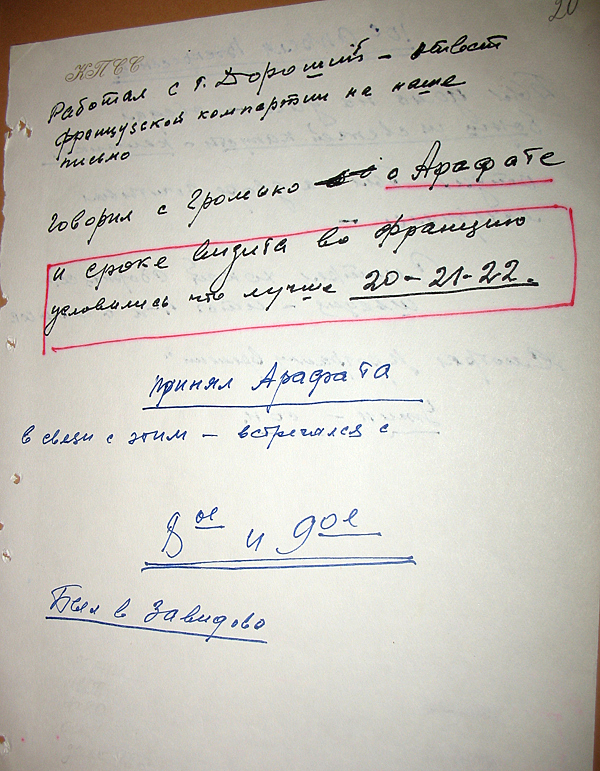 20
КПСС
Работал с т. Дорошиной – ответ
французской компартии на наше
письмо
Говорил с Громыко о Арафате
и сроке визита во францию
условились что лучше 20-21-22.
принял Арафата
в связи с этим – встречался с
8ое и 9ое
Был в Завидово